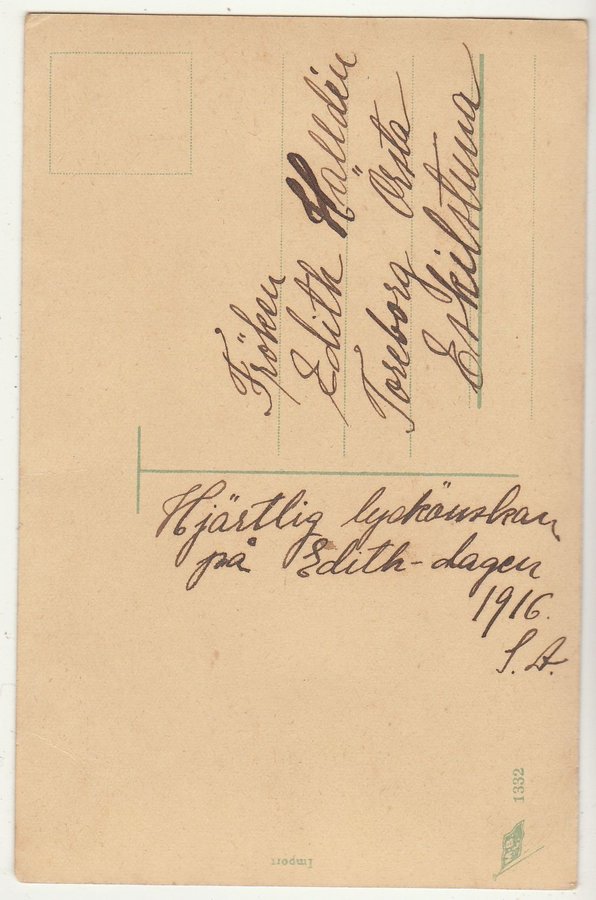 Fröken
Edith Hälldin
Toreborg Örsta
Eskilstuna
Hjärtlig lyckönskan
på Edith-dagen
1916.
S. A.
1332
Import